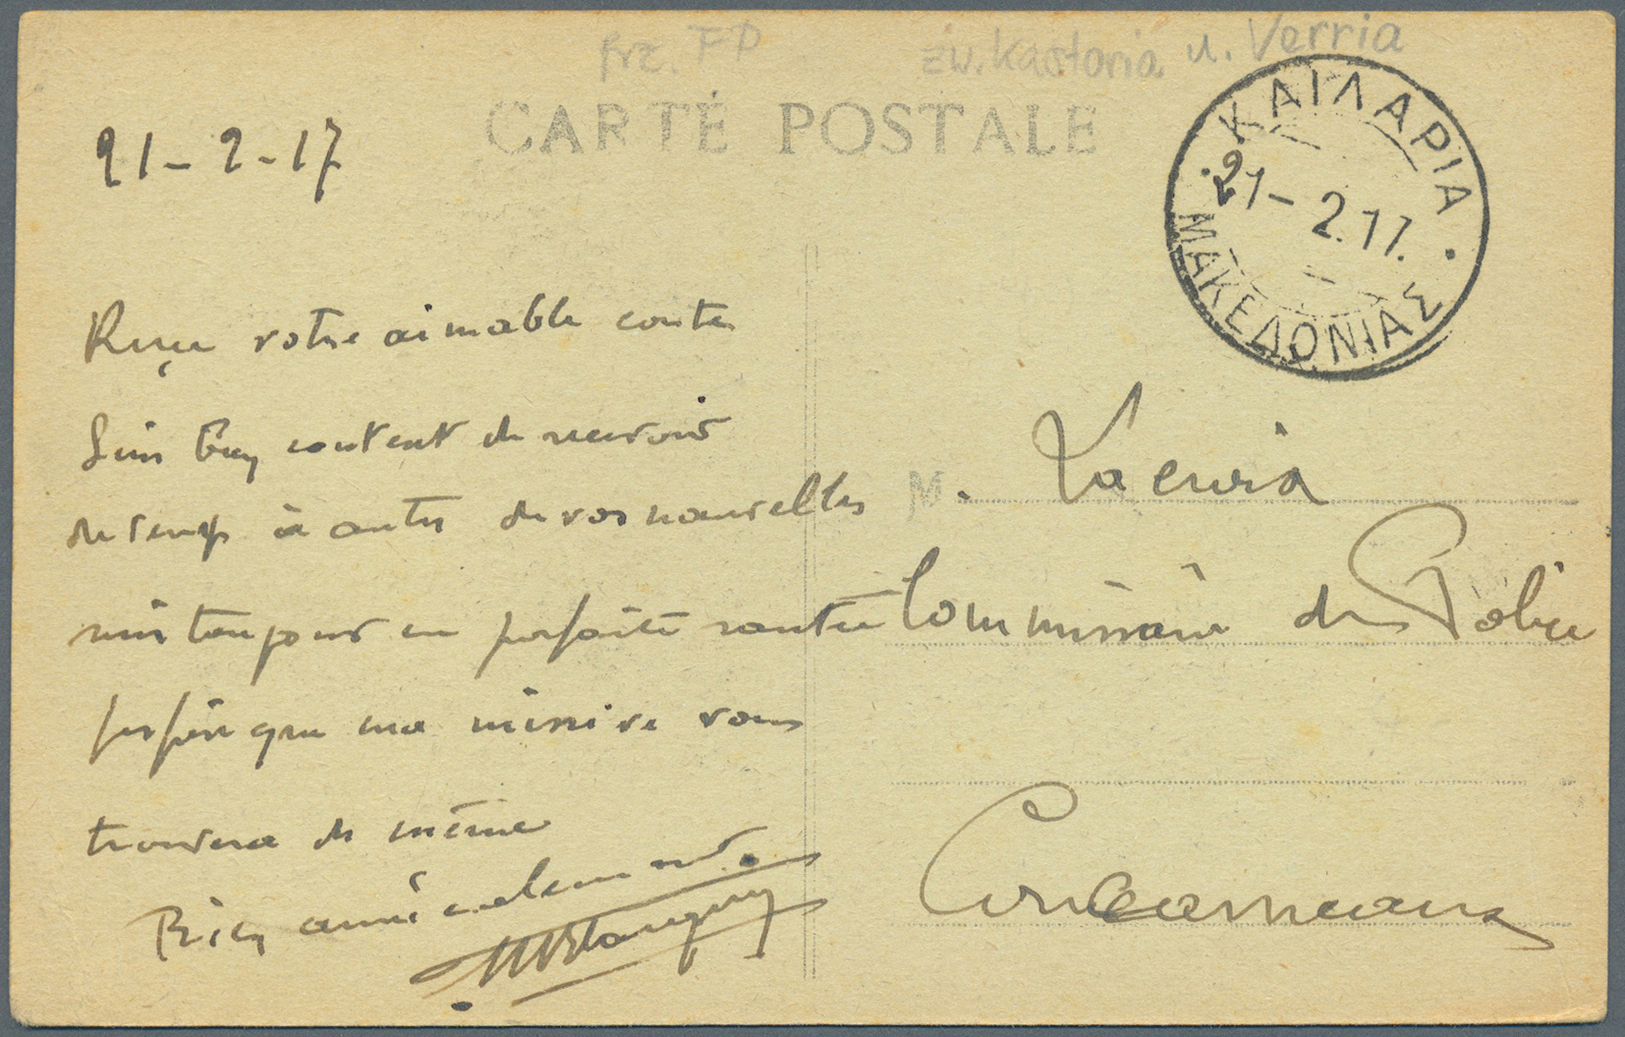 frz. FP zw. Kastoria u. Verria
CARTE POSTALE
21-2-17
ΚΑΙΛΑΡΙΑ
21-2.17.
ΜΑΚΕΔΟΝΙΑΣ
Reçu votre aimable carte
Suis bien content de recevoir
de temps à autre de vos nouvelles
suis toujours en parfaite santé
j'espère que ma missive vous
trouvera de même
Bien amicalement
M.
Commissaire de Police
Concarneau